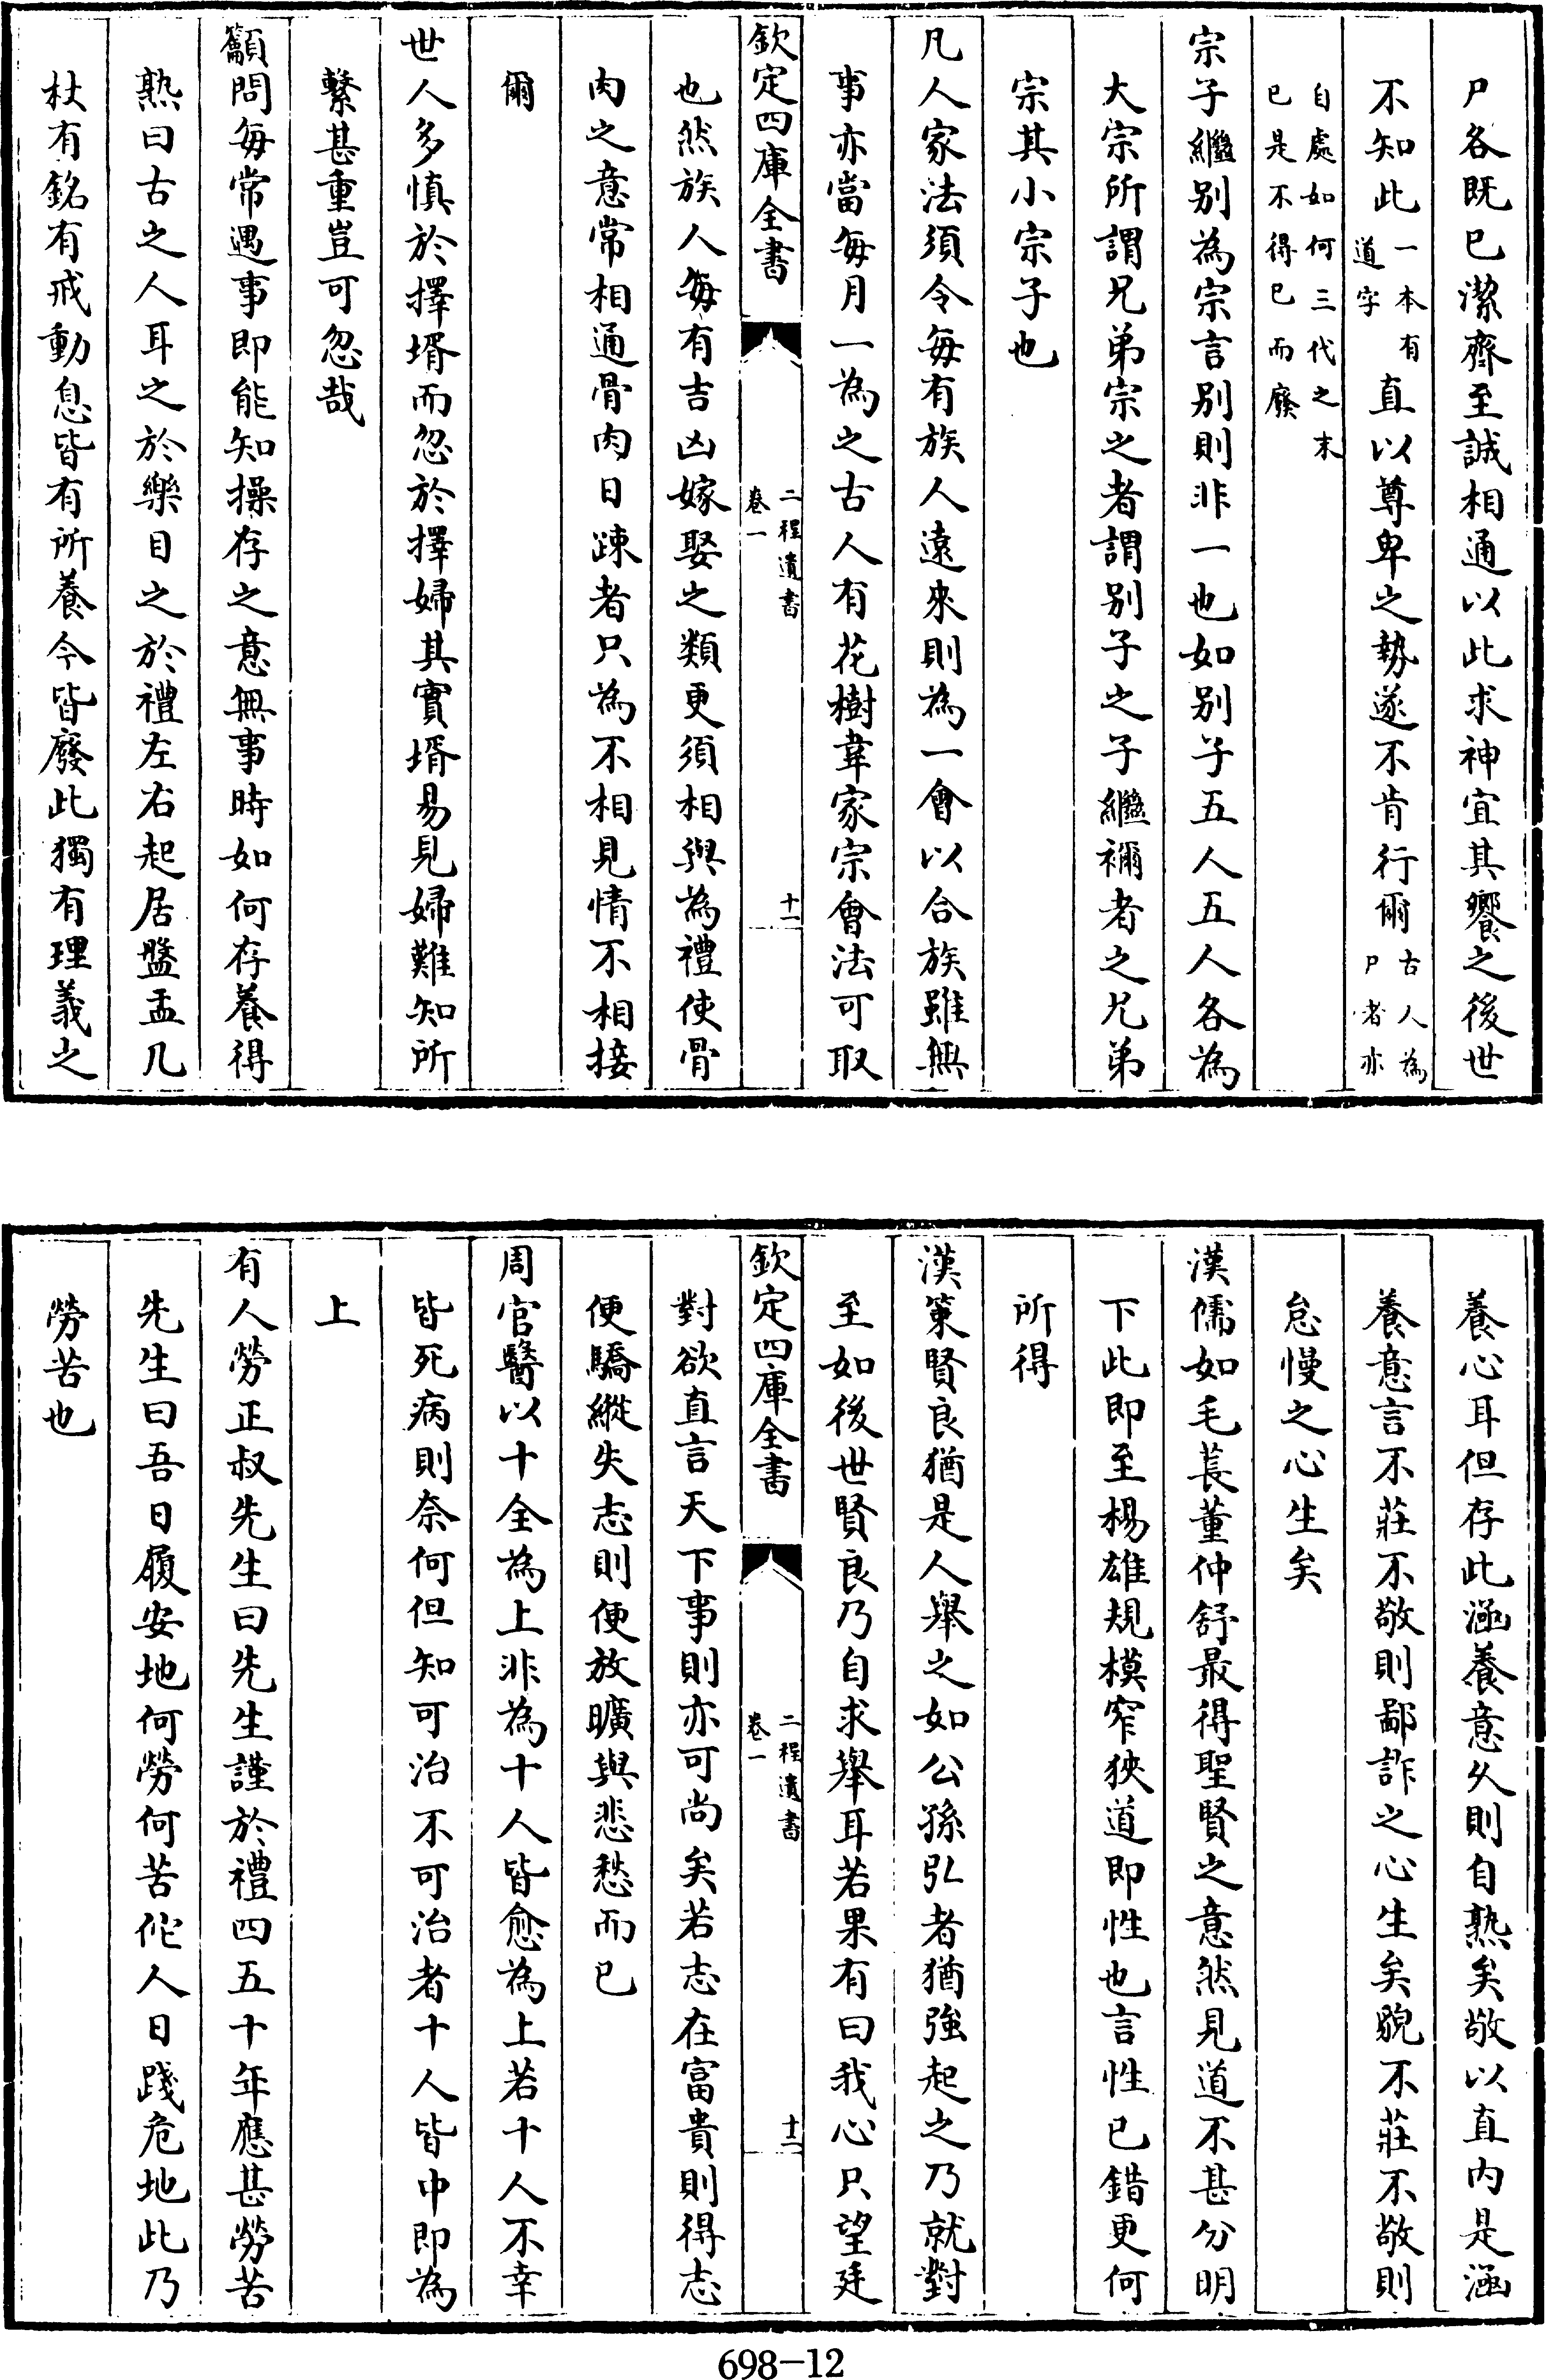 尸各既已潔齊至誠相通以此求神宜其饗之後世
不知此一本有道字直以尊卑之勢遂不肯行爾古人為尸者亦
自處如何三代之末已是不得已而廢
宗子繼别為宗言别則非一也如别子五人五人各為
大宗所謂兄弟宗之者謂别子之子繼禰者之兄弟
宗其小宗子也
凡人家法須令每有族人遠來則為一會以合族雖無
事亦當每月一為之古人有花樹韋家宗會法可取
欽定四庫全書
二程遺書
卷一
十一
也然族人每有吉凶嫁娶之類更須相與為禮使骨
肉之意常相通骨肉日踈者只為不相見情不相接
爾
世人多慎於擇壻而忽於擇婦其實壻易見婦難知所
繫甚重豈可忽哉
籲問每常遇事即能知操存之意無事時如何存養得
熟曰古之人耳之於樂目之於禮左右起居盤盂几
杖有銘有戒動息皆有所養今皆廢此獨有理義之
養心耳但存此涵養意久則自熟矣敬以直内是涵
養意言不莊不敬則鄙詐之心生矣貌不莊不敬則
怠慢之心生矣
漢儒如毛萇董仲舒最得聖賢之意然見道不甚分明
下此即至楊雄規模窄狹道即性也言性已錯更何
所得
漢策賢良猶是人舉之如公孫弘者猶強起之乃就對
至如後世賢良乃自求舉耳若果有曰我心只望廷
欽定四庫全書
二程遺書
卷一
十二
對欲直言天下事則亦可尚矣若志在富貴則得志
便驕縱失志則便放曠與悲愁而已
周官醫以十全為上非為十人皆愈為上若十人不幸
皆死病則奈何但知可治不可治者十人皆中即為
上
有人勞正叔先生曰先生謹於禮四五十年應甚勞苦
先生曰吾日履安地何勞何苦佗人日踐危地此乃
勞苦也
698-12